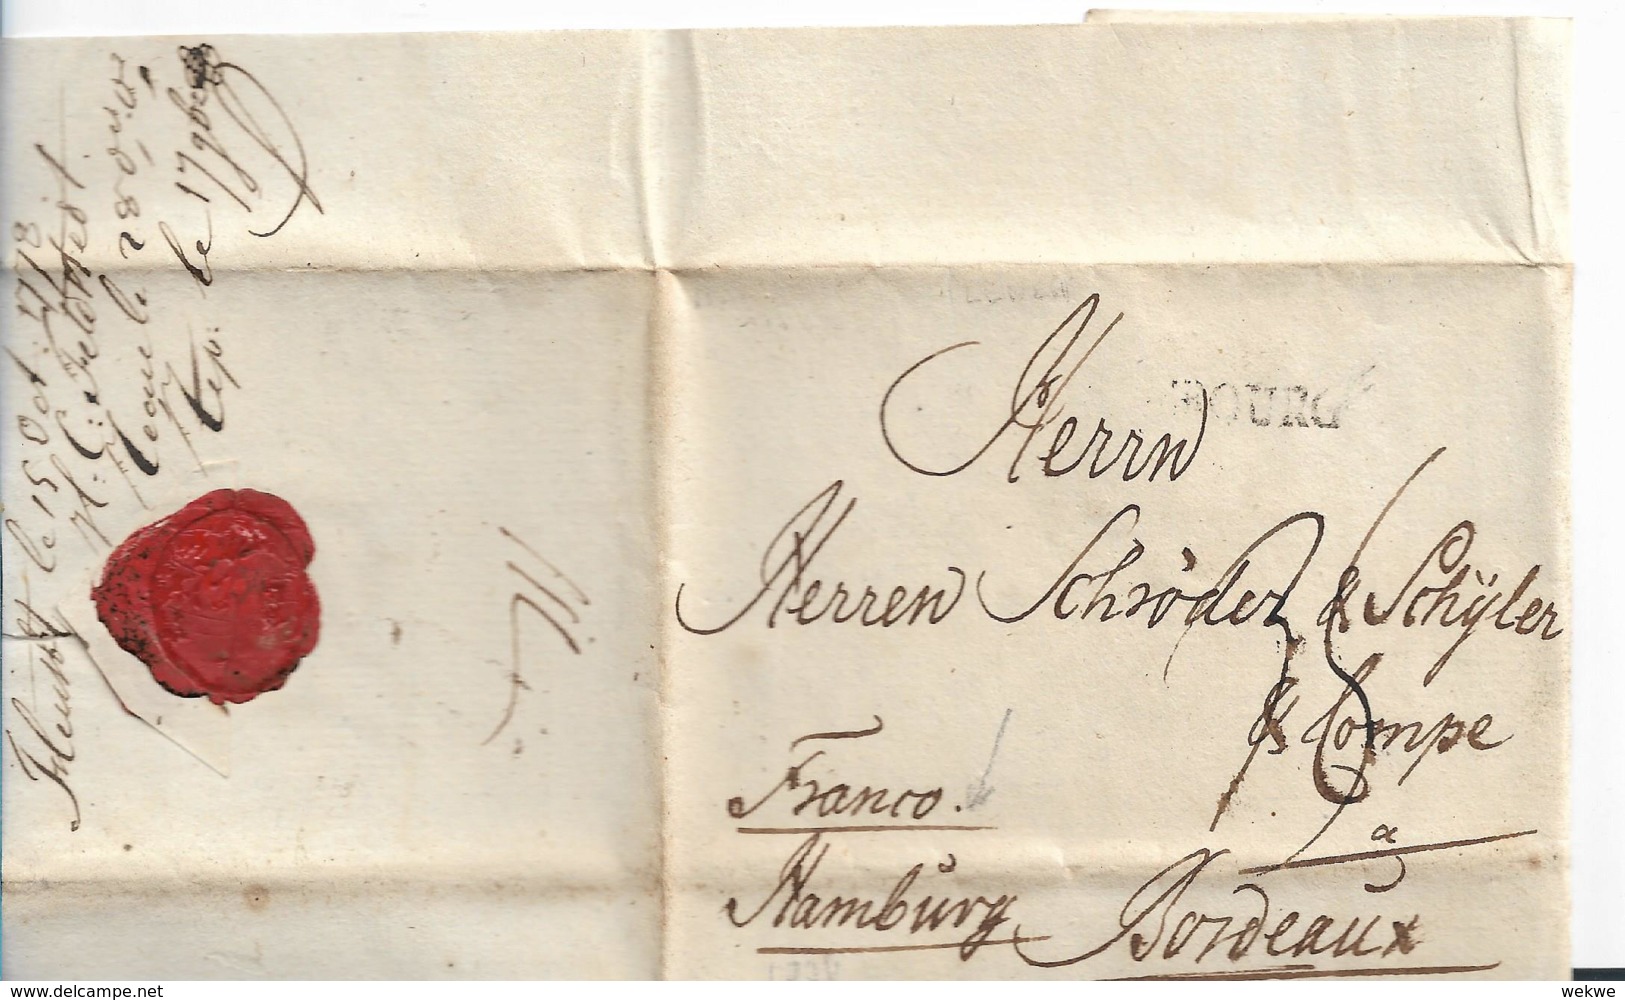 Flensbg le 15 Oct. 1778
H: C: Feldstedt
le 28 d
rep: le 17 9bre
Herrn
Herren Schröder & Schÿler
& Compe
Franco.
a
Hamburg
Bordeaux
www.delcampe.net
wekwe